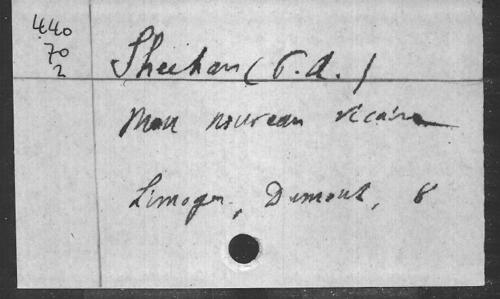 440
70
2
Sheehan (P. A.)
Mon nouveau vicaire
Limoges, Dumont, 8